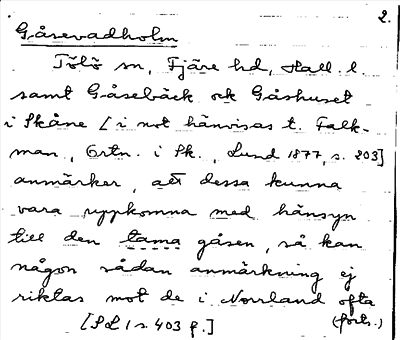 2.
Gåsevadholm
Tölö sn, Fjäre hd, Hall. l.
samt Gåsebäck och Gåshuset
i Skåne [i not hänvisas t. Falk-
man, Ortn. i Sk., Lund 1877, s. 203]
anmärker, att dessa kunna
vara uppkomna med hänsyn
till den tama gåsen, så kan
någon sådan anmärkning ej
riktas mot de i Norrland ofta
[SL 1 s. 403 f.] (forts.)